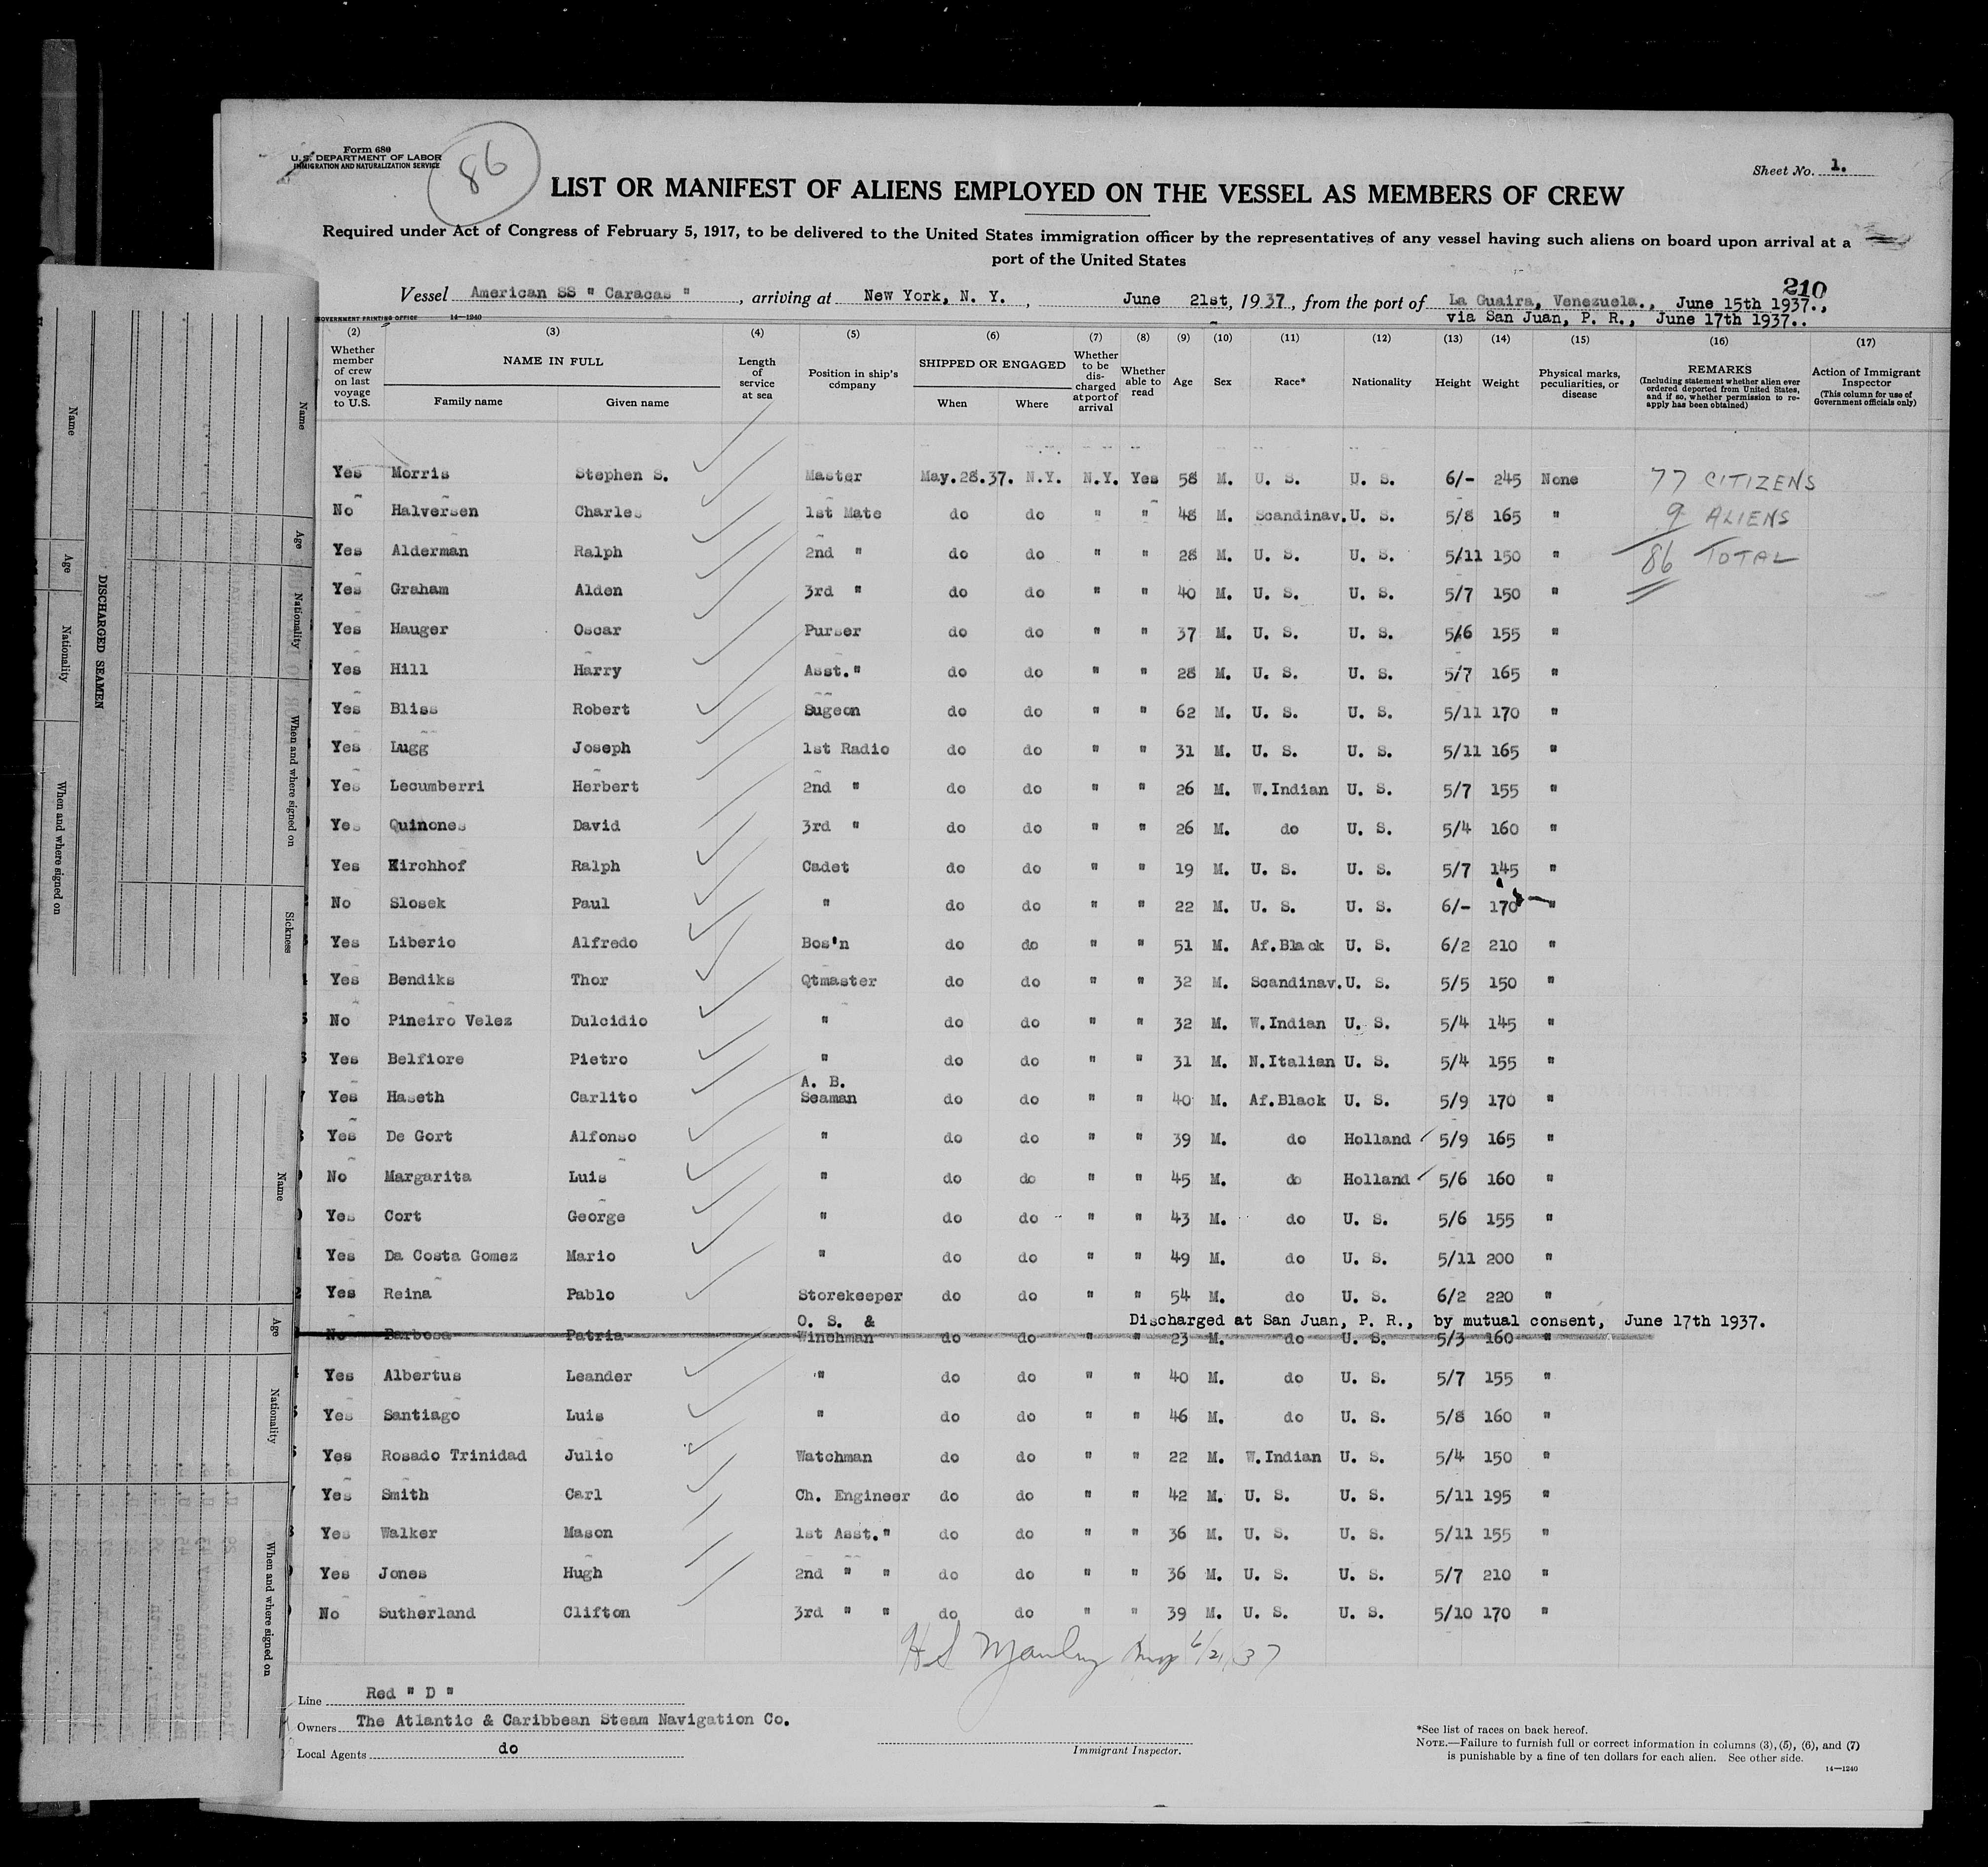 Form 680
U. S. DEPARTMENT OF LABOR
IMMIGRATION AND NATURALIZATION SERVICE
86
Sheet No. 1.
LIST OR MANIFEST OF ALIENS EMPLOYED ON THE VESSEL AS MEMBERS OF CREW
Required under Act of Congress of February 5, 1917, to be delivered to the United States immigration officer by the representatives of any vessel having such aliens on board upon arrival at a
port of the United States
210
Vessel American SS " Caracas ", arriving at New York, N. Y., June 21st, 1937, from the port of La Guaira, Venezuela., June 15th 1937.,
via San Juan, P. R., June 17th 1937..
GOVERNMENT PRINTING OFFICE 14—1240
(2) (3) (4) (5) (6) (7) (8) (9) (10) (11) (12) (13) (14) (15) (16) (17)
Whether member of crew on last voyage to U.S.
NAME IN FULL
Family name Given name
Length of service at sea
Position in ship's company
SHIPPED OR ENGAGED
When Where
Whether to be discharged at port of arrival
Whether able to read
Age Sex Race* Nationality Height Weight
Physical marks, peculiarities, or disease
REMARKS
(Including statement whether alien ever ordered deported from United States, and if so, whether permission to reapply has been obtained)
Action of Immigrant Inspector
(This column for use of Government officials only)
Yes Morris Stephen S. Master May.28.37. N.Y. N.Y. Yes 58 M. U. S. U. S. 6/- 245 None 77 CITIZENS
No Halversen Charles 1st Mate do do " " 48 M. Scandinav. U. S. 5/8 165 " 9 ALIENS
Yes Alderman Ralph 2nd " do do " " 28 M. U. S. U. S. 5/11 150 " 86 TOTAL
Yes Graham Alden 3rd " do do " " 40 M. U. S. U. S. 5/7 150 "
Yes Hauger Oscar Purser do do " " 37 M. U. S. U. S. 5/6 155 "
Yes Hill Harry Asst." do do " " 28 M. U. S. U. S. 5/7 165 "
Yes Bliss Robert Sugeon do do " " 62 M. U. S. U. S. 5/11 170 "
Yes Lugg Joseph 1st Radio do do " " 31 M. U. S. U. S. 5/11 165 "
Yes Lecumberri Herbert 2nd " do do " " 26 M. W.Indian U. S. 5/7 155 "
Yes Quinones David 3rd " do do " " 26 M. do U. S. 5/4 160 "
Yes Kirchhof Ralph Cadet do do " " 19 M. U. S. U. S. 5/7 145 "
No Slosek Paul " do do " " 22 M. U. S. U. S. 6/- 170 "
Yes Liberio Alfredo Bos'n do do " " 51 M. Af.Black U. S. 6/2 210 "
Yes Bendiks Thor Qtmaster do do " " 32 M. Scandinav. U. S. 5/5 150 "
No Pineiro Velez Dulcidio " do do " " 32 M. W.Indian U. S. 5/4 145 "
Yes Belfiore Pietro " do do " " 31 M. N.Italian U. S. 5/4 155 "
A. B.
Yes Haseth Carlito Seaman do do " " 40 M. Af.Black U. S. 5/9 170 "
Yes De Gort Alfonso " do do " " 39 M. do Holland 5/9 165 "
No Margarita Luis " do do " " 45 M. do Holland 5/6 160 "
Yes Cort George " do do " " 43 M. do U. S. 5/6 155 "
Yes Da Costa Gomez Mario " do do " " 49 M. do U. S. 5/11 200 "
Yes Reina Pablo Storekeeper do do " " 54 M. do U. S. 6/2 220 "
O. S. & Discharged at San Juan, P. R., by mutual consent, June 17th 1937.
No Barbosa Patria Winchman do do " " 23 M. do U. S. 5/3 160 "
Yes Albertus Leander " do do " " 40 M. do U. S. 5/7 155 "
Yes Santiago Luis " do do " " 46 M. do U. S. 5/8 160 "
Yes Rosado Trinidad Julio Watchman do do " " 22 M. W.Indian U. S. 5/4 150 "
Yes Smith Carl Ch. Engineer do do " " 42 M. U. S. U. S. 5/11 195 "
Yes Walker Mason 1st Asst." do do " " 36 M. U. S. U. S. 5/11 155 "
Yes Jones Hugh 2nd " " do do " " 36 M. U. S. U. S. 5/7 210 "
No Sutherland Clifton 3rd " " do do " " 39 M. U. S. U. S. 5/10 170 "
6/21/37
Line Red " D "
Owners The Atlantic & Caribbean Steam Navigation Co.
Local Agents do
Immigrant Inspector.
*See list of races on back hereof.
NOTE.—Failure to furnish full or correct information in columns (3), (5), (6), and (7)
is punishable by a fine of ten dollars for each alien. See other side.
14—1240
DISCHARGED SEAMEN
Name
Age
Nationality
When and where signed on
Name
Age
Nationality
When and where signed on
Sickness
Name
Age
Nationality
When and where signed on